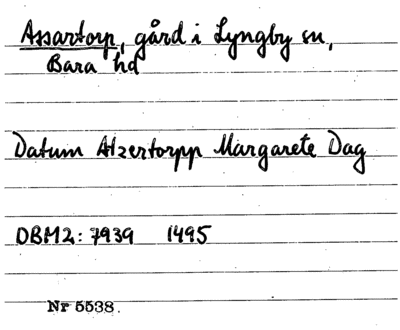 Assartorp, gård i Lyngby sn,
Bara hd
Datum Atzertorpp Margarete Dag
DBM2: 7939 1495
Nr 5538.